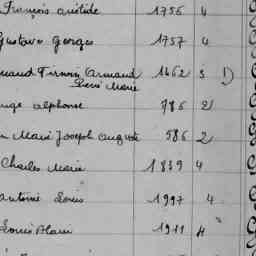 François aristide 1756 4
Gustave Georges 1757 4
Firmin Armand 1662 3 1)
Pierre Marie
alphonse 786 2
Marie Joseph auguste 586 2
Charles Marie 1839 4
antoine Louis 1997 4
Louis Alain 1911 4